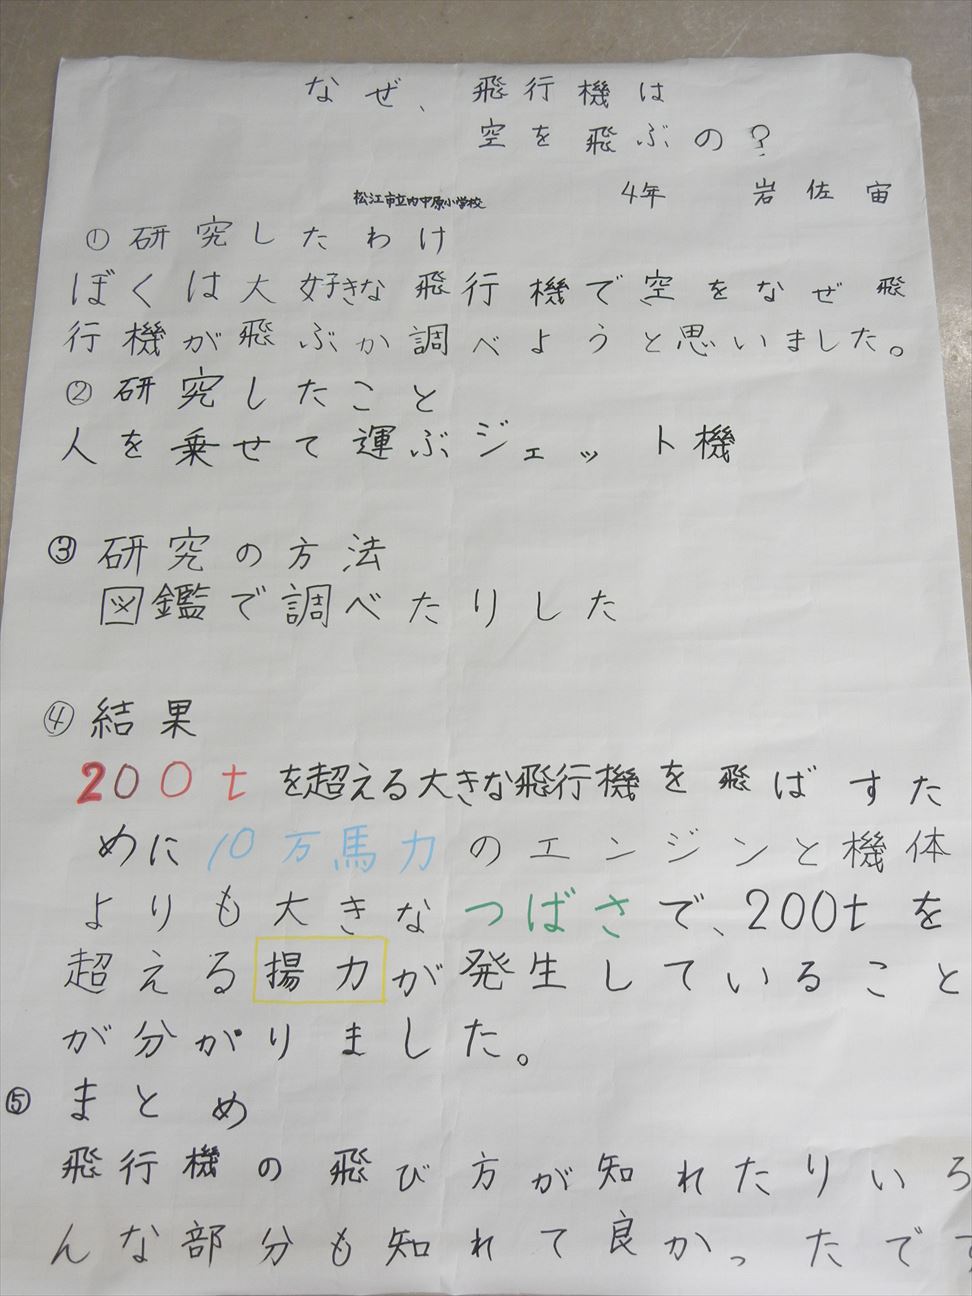 なぜ、飛行機は
空を飛ぶの?
松江市立内中原小学校 4年 岩佐宙
①研究したわけ
ぼくは大好きな飛行機で空をなぜ飛
行機が飛ぶか調べようと思いました。
②研究したこと
人を乗せて運ぶジェット機
③研究の方法
図鑑で調べたりした
④結果
200tを超える大きな飛行機を飛ばすた
めに10万馬力のエンジンと機体
よりも大きなつばさで、200tを
超える揚力が発生していること
が分かりました。
⑤まとめ
飛行機の飛び方が知れたりいろ
んな部分も知れて良かったです